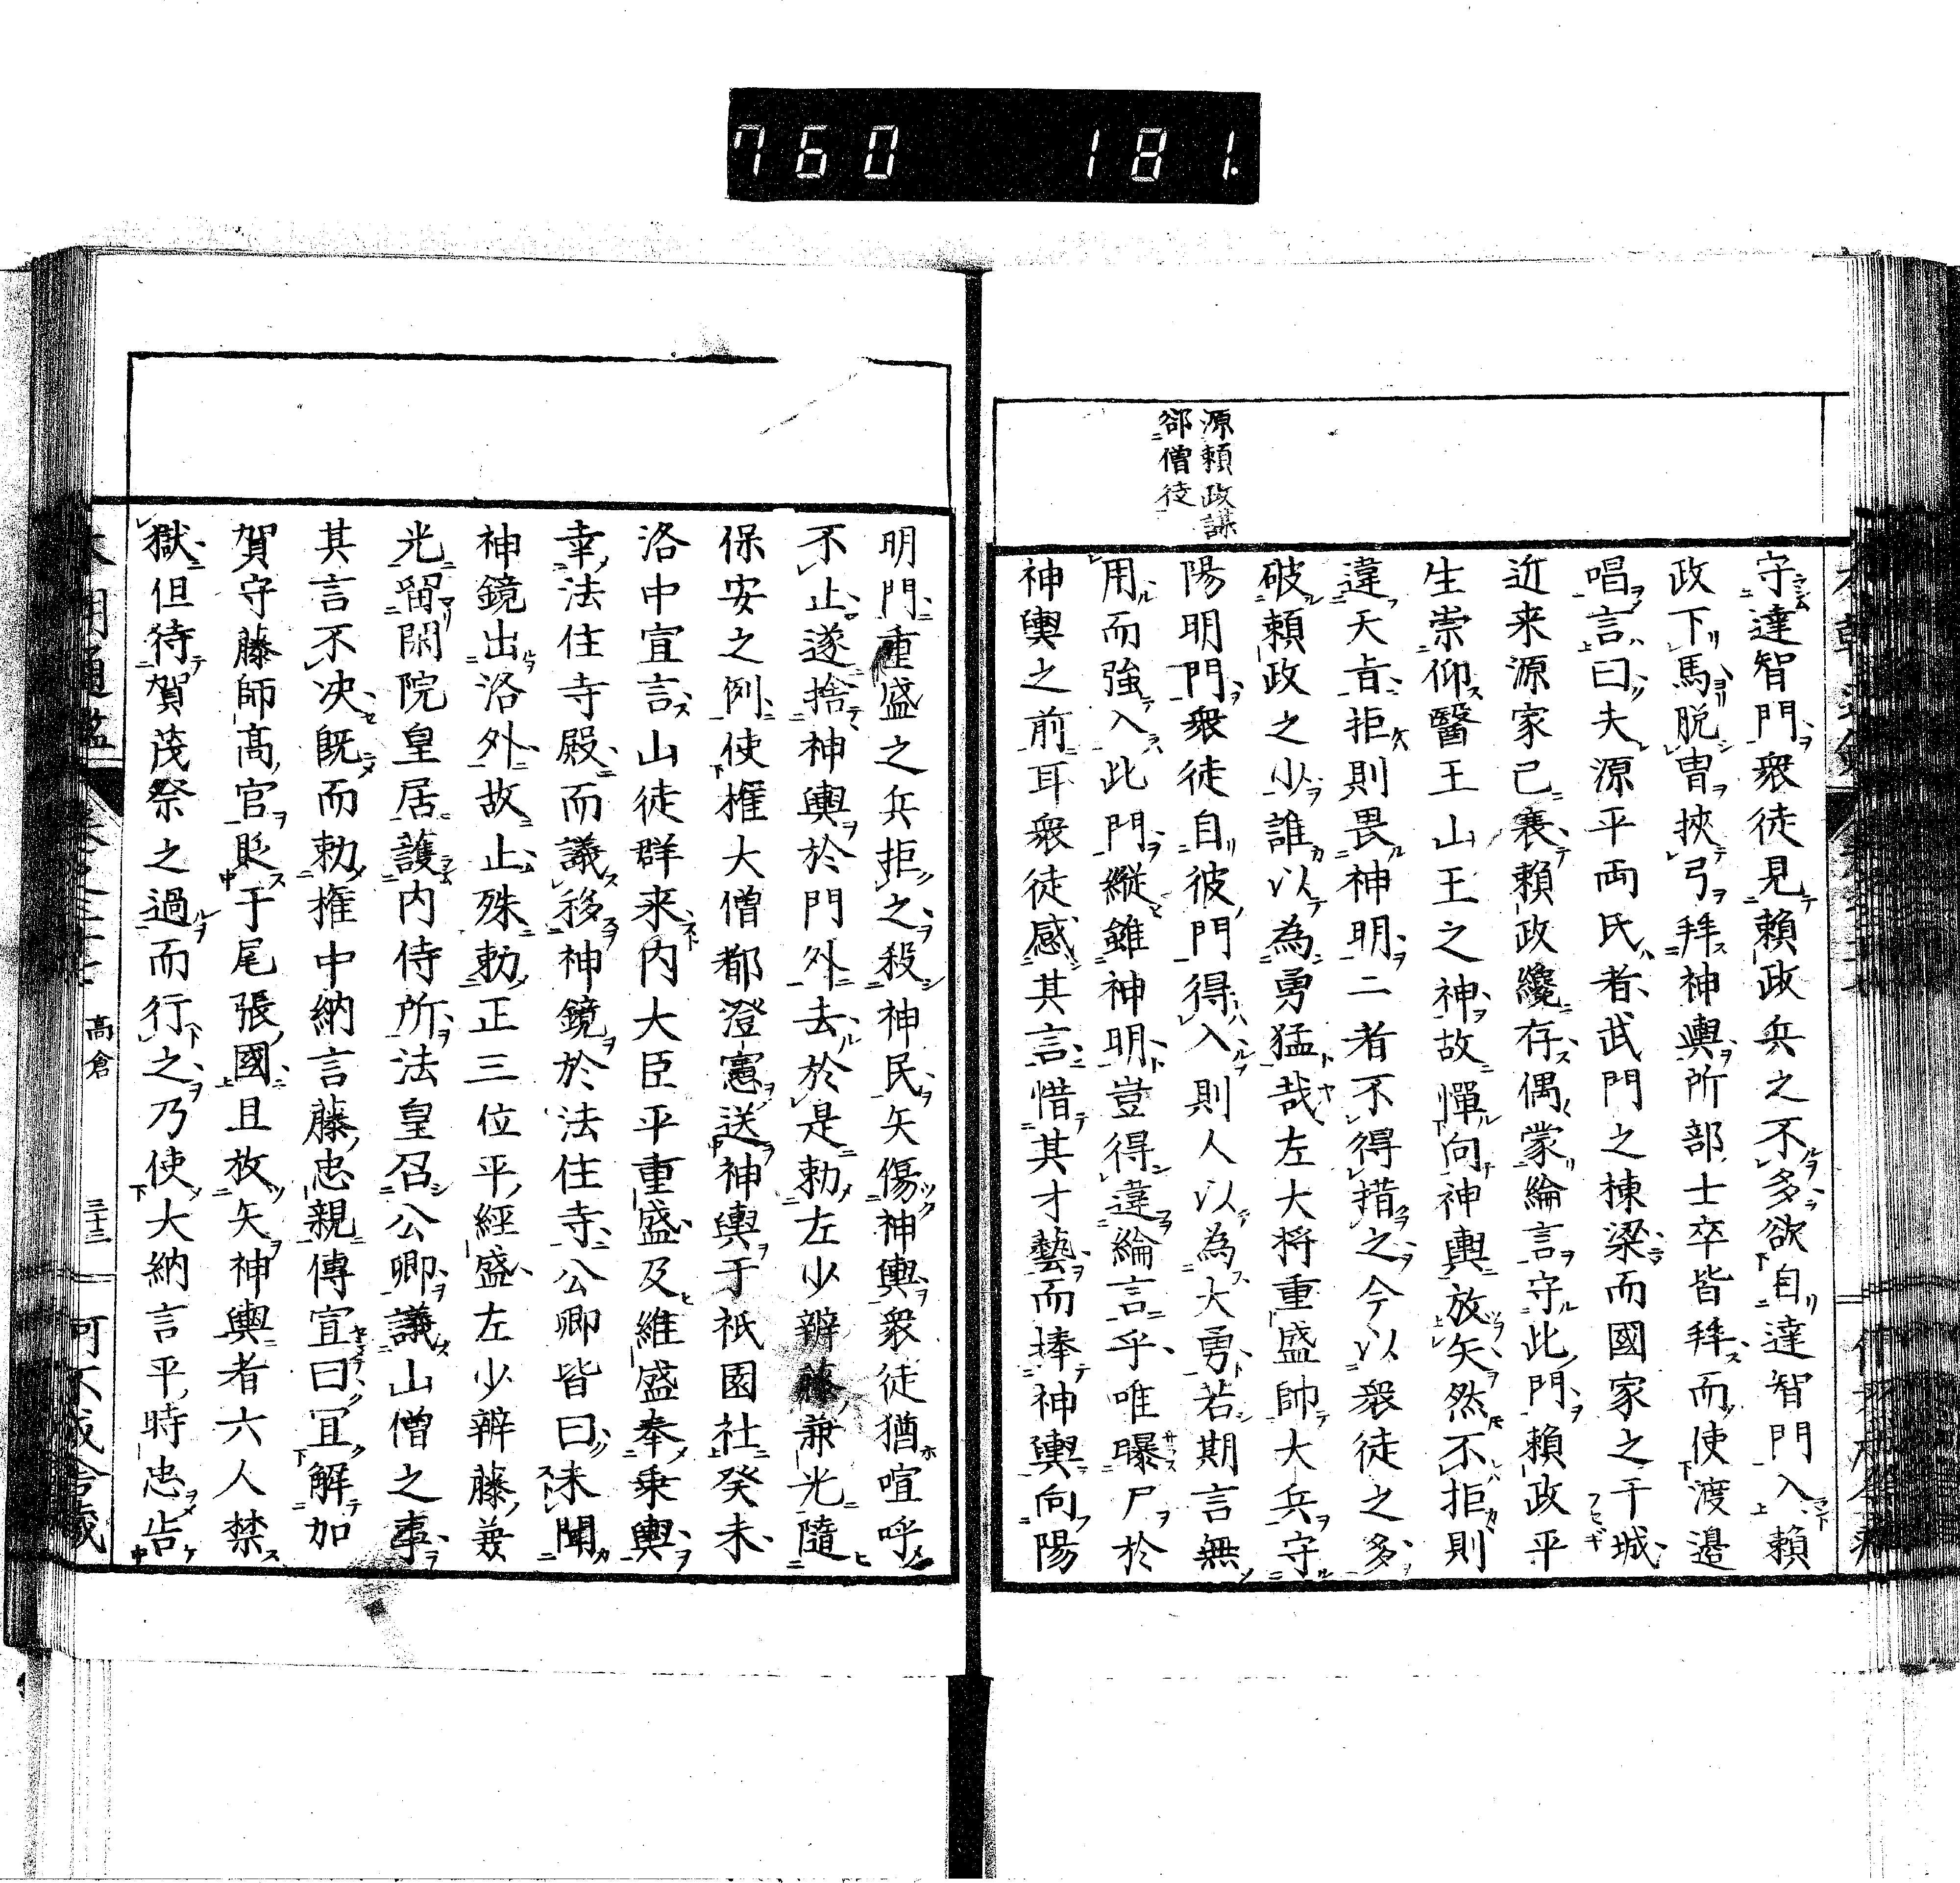 760 181.
源頼政謀
郤僧徒
守達智門衆徒見頼政兵之不多欲自達智門入頼
政下馬脱冑挾弓拜神輿所部士卒皆拜而使渡邉
唱言曰夫源平両氏者武門之棟梁而國家之干城
近来源家已衰頼政纔存偶蒙綸言守此門頼政平
生崇仰醫王山王之神故憚向神輿放矢然不拒則
違天旨拒則畏神明二者不得措之今以衆徒之多
破頼政之少誰以為勇猛哉左大将重盛帥大兵守
陽明門衆徒自彼門得入則人以為大勇若期言無
用而強入此門縱雖神明豈得違綸言乎唯曝尸於
神輿之前耳衆徒感其言惜其才藝而捧神輿向陽
明門重盛之兵拒之殺神民矢傷神輿衆徒猶喧呼
不止遂捨神輿於門外去於是勅左少辨藤兼光隨
保安之例使權大僧都澄憲送神輿于祇園社癸未
洛中宣言山徒群来内大臣平重盛及維盛奉乗輿
幸法住寺殿而議移神鏡於法住寺公卿皆曰未聞
神鏡出洛外故止殊勅正三位平經盛左少辨藤兼
光留閑院皇居護内侍所法皇召公卿議山僧之事
其言不决既而勅権中納言藤忠親傳宣曰冝解加
賀守藤師髙官貶于尾張國且放矢神輿者六人禁
獄但待賀茂祭之過而行之乃使大納言平時忠告
高倉
三十三